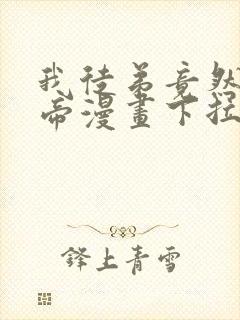 我徒弟竟然
帝漫畫下拉
鋒上青雪